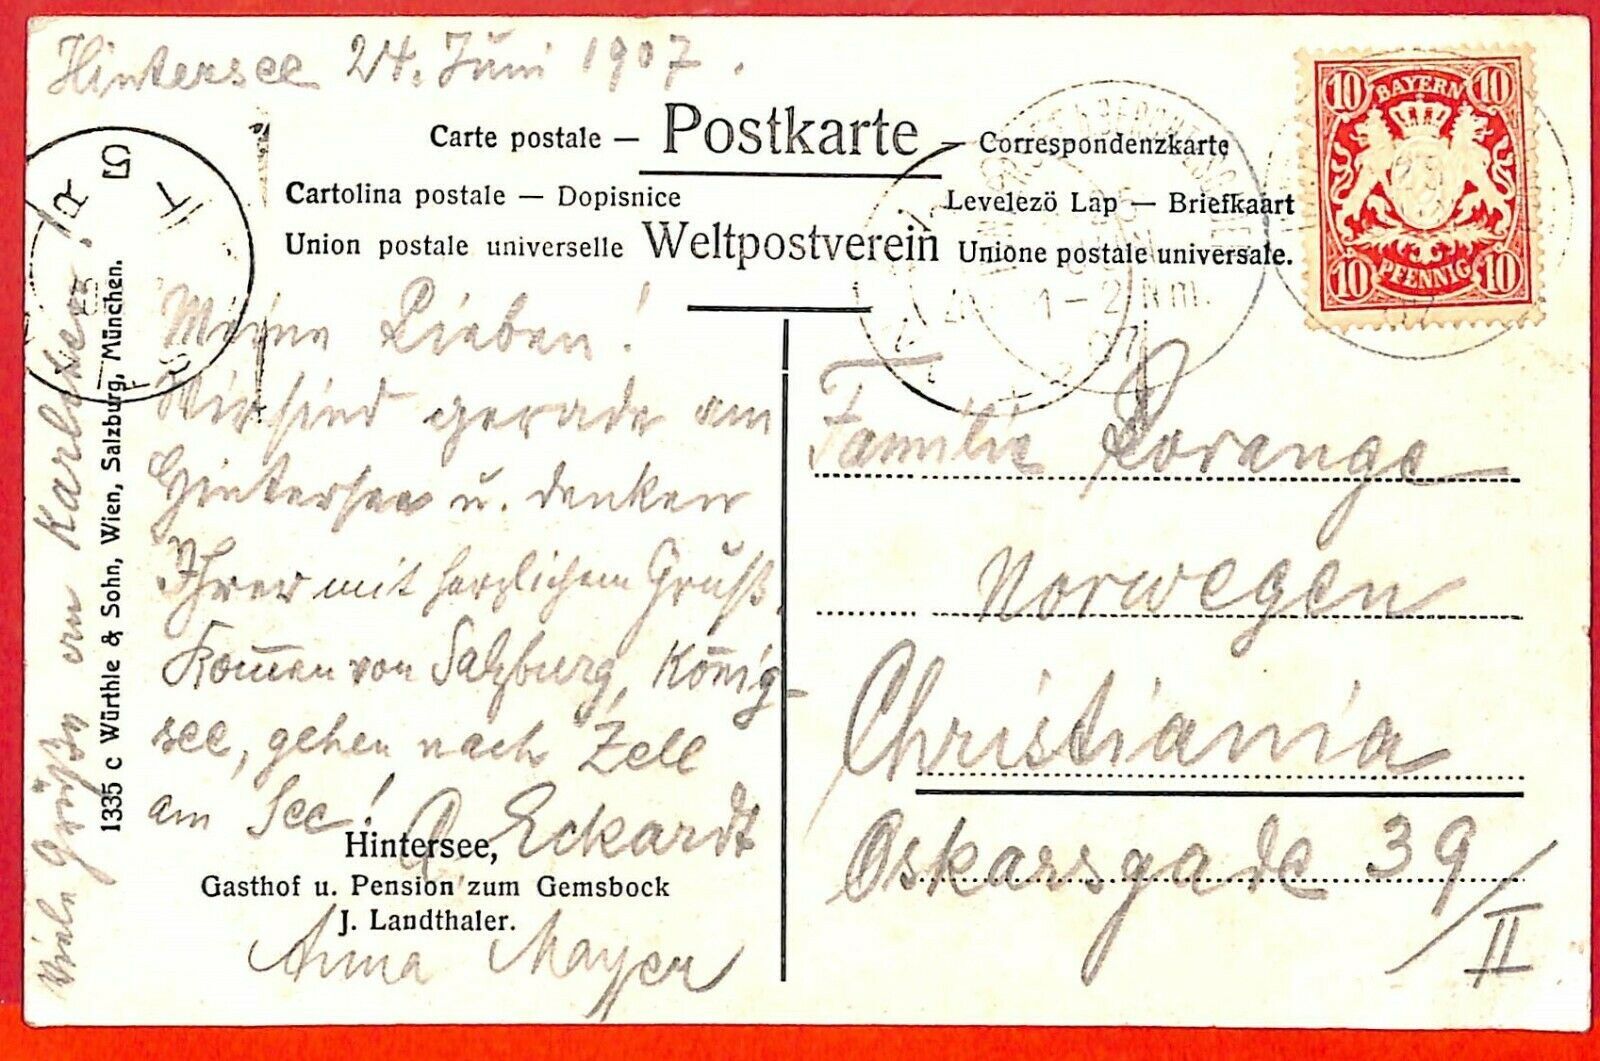 Hintersee 24. Juni 1907.
Carte postale — Postkarte — Correspondenzkarte
Cartolina postale — Dopisnice
Levelezö Lap — Briefkaart
Union postale universelle Weltpostverein Unione postale universale.
BAYERN
10 10
10 PFENNIG 10
1-2 Nm.
07
Meine Lieben!
Wir sind gerade am
Hintersee u. denken
Ihrer mit herzlichem Gruß.
Kom̄en von Salzburg, Königs-
see, gehen nach Zell
am See!
Eckardt
Anna Mayer
Hintersee,
Gasthof u. Pension zum Gemsbock
J. Landthaler.
Viele Grüße an
1335 c Würthle & Sohn, Wien, Salzburg, München.
Familie Lorange
Norwegen
Christiania
Oskarsgade 39/II